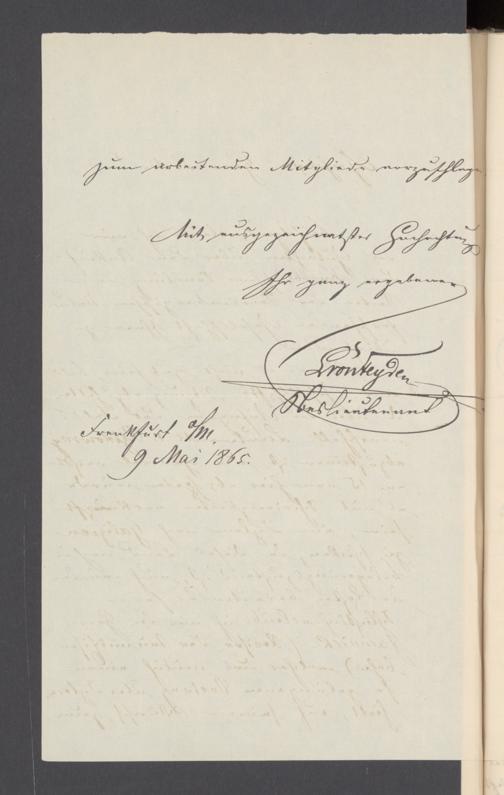 zum arbeitenden Mitgliede vorzuschlage
Mit ausgezeichnetster Hochachtung
Ihr ganz ergebener
Oberstlieutenant
Frankfurt a/M.
9 Mai 1865.